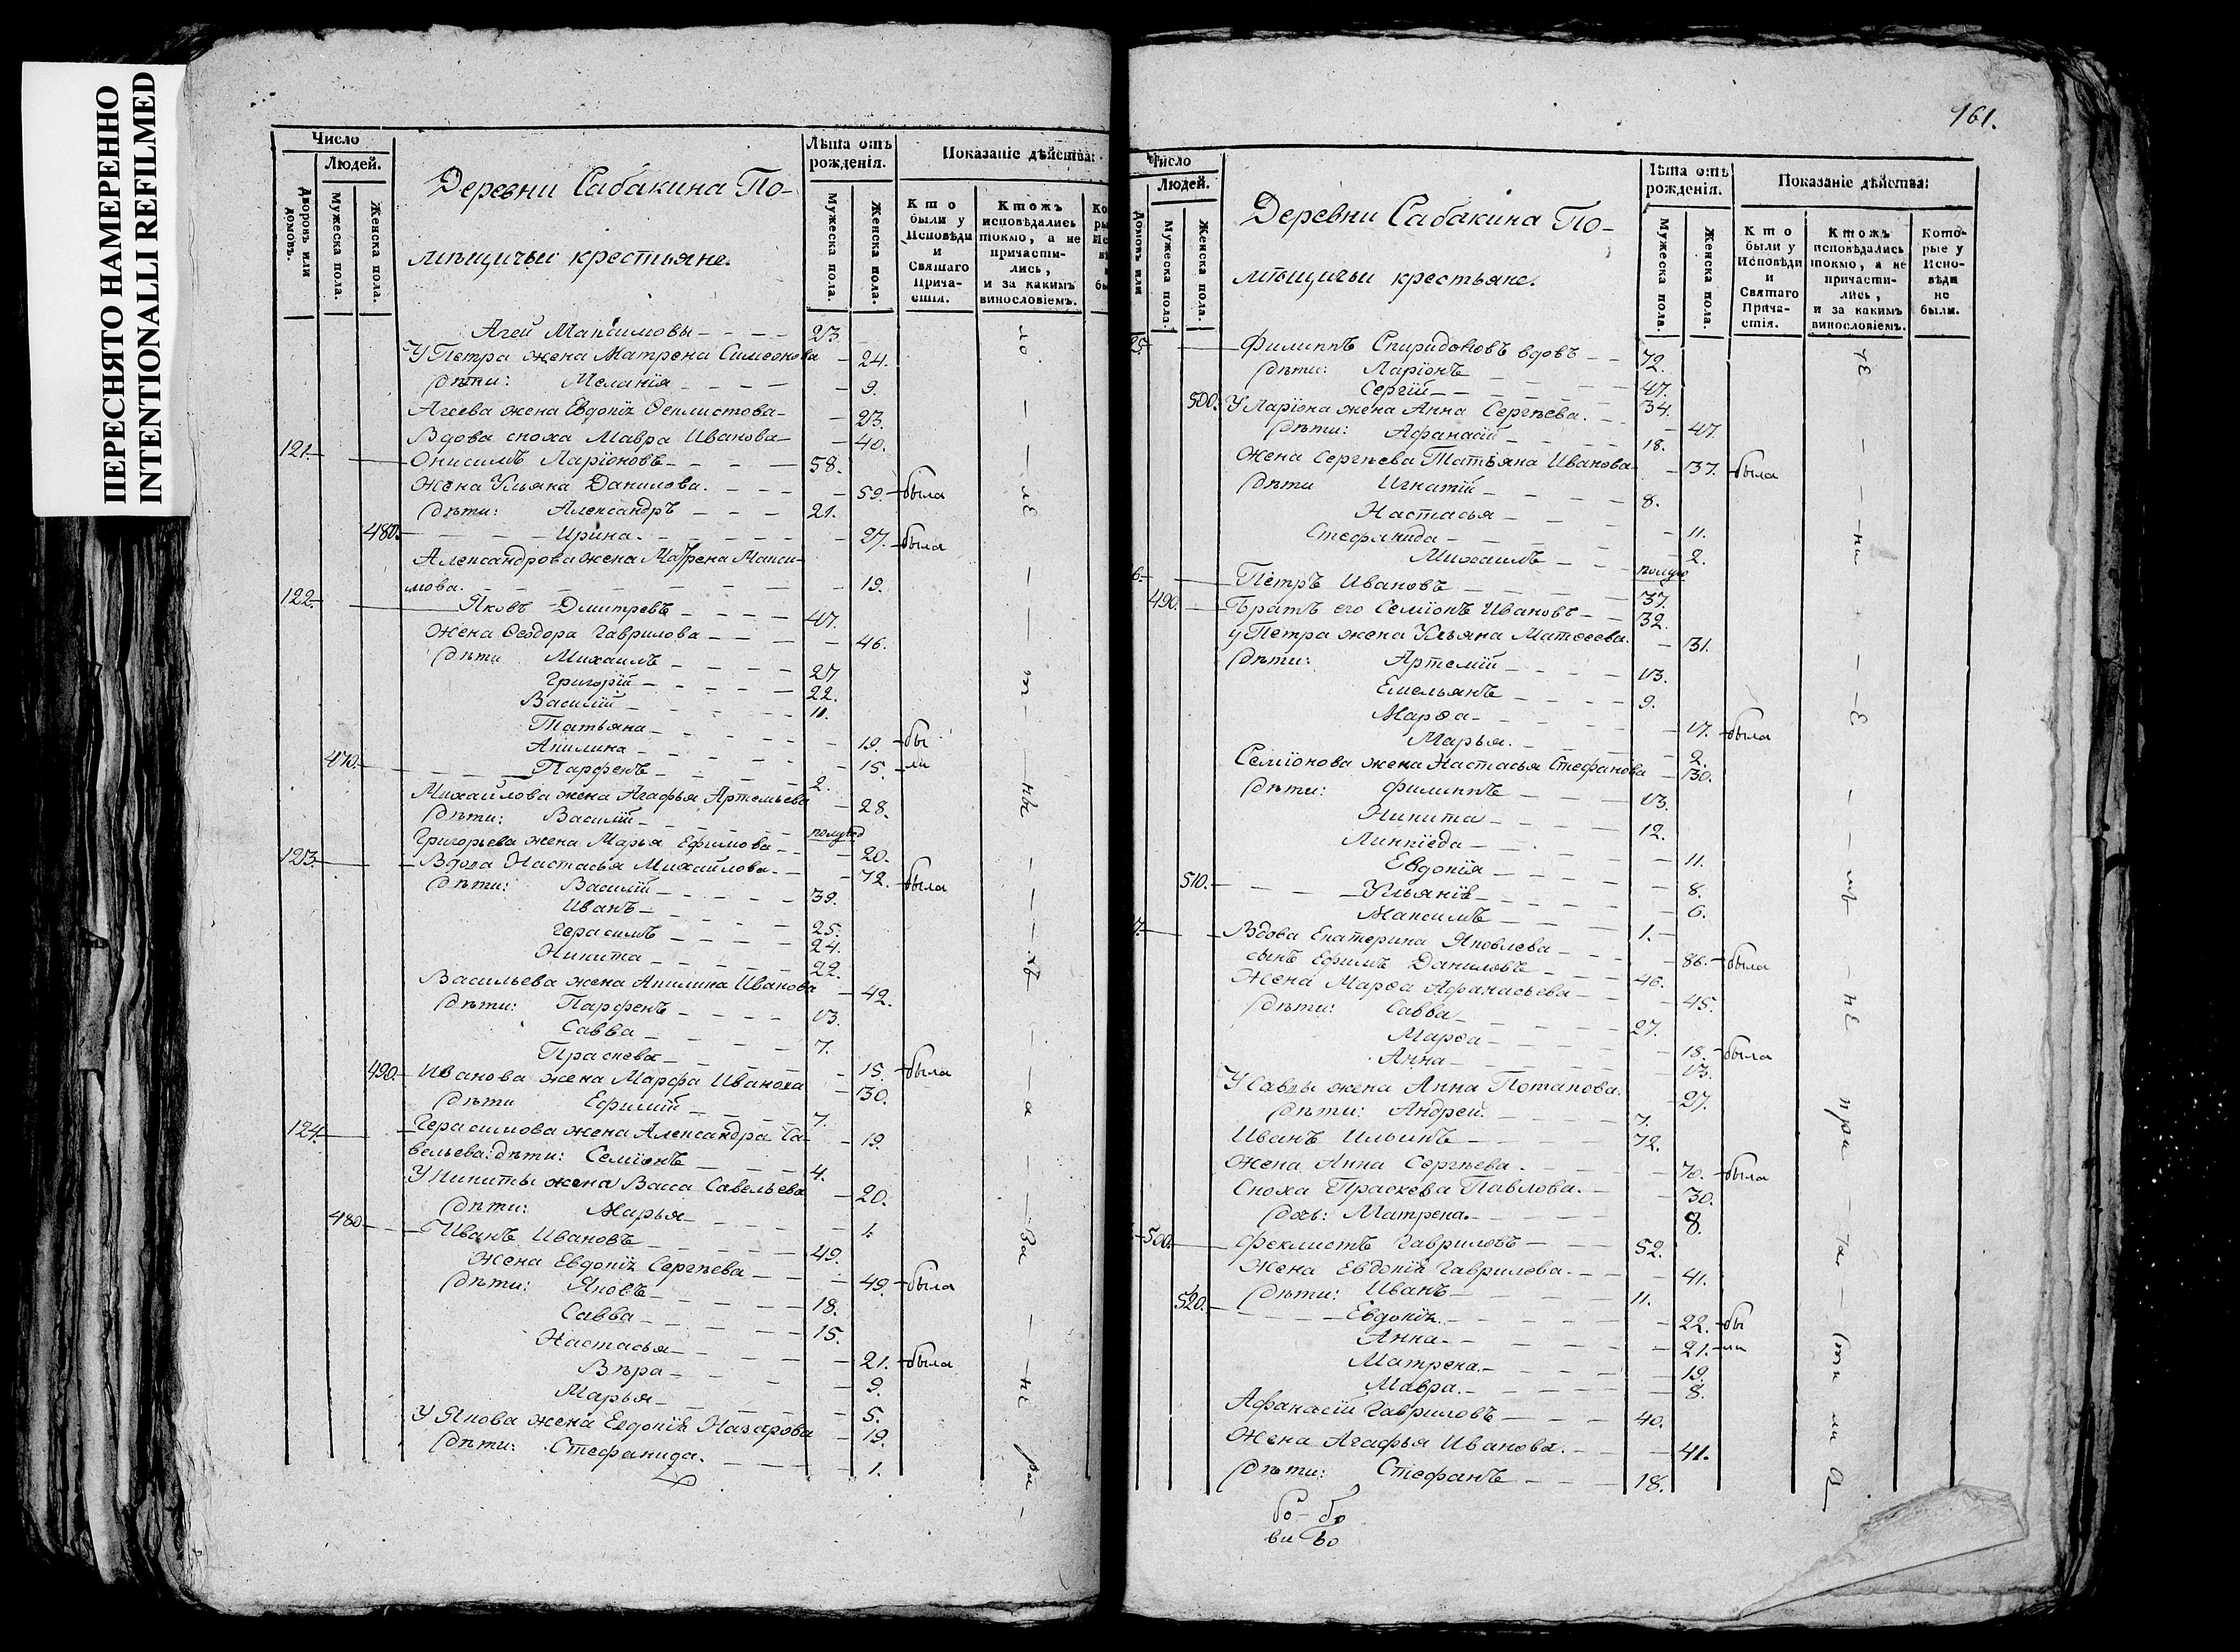 ПЕРЕСНЯТО НАМЕРЕННО
INTENTIONALLI REFILMED
Число
Людей.
Дворовъ или домовъ.
Мужеска пола.
Женска пола.
Деревни Сабакина По-
мѣщичьи крестьяне.
Лѣта отъ рожденія.
Мужеска пола.
Женска пола.
Показаніе дѣйства:
Кто были у Исповѣди и Святаго Прича- стія.
Ктожъ исповѣдались токмо, а не причасти- лись, и за какимъ винословіемъ.
Агей Максимовы 23.
У Петра жена Матрена Симеонова 24.
Дѣти: Меланія 9.
Агеева жена Евдокія Феклистова 23.
Вдова сноха Мавра Иванова 40.
121. Онисимъ Ларіоновъ 58.
Жена Ульяна Данилова. 59. была
Дѣти: Александръ 21.
480. Ирина. 27. была
Александрова жена Матрена Макси-
мова. 19.
122. Яковъ Дмитревъ 47.
Жена Ѳеодора Гаврилова 46.
Дѣти Михаилъ 27
Григорій 22.
Василій 11.
Татьяна 19. бы
Акилина 15. ли
470. Парфенъ 2.
Михайлова жена Агафья Артемьева 28.
Дѣти: Василій полугод
Григорьева жена Марья Ефимова 20.
123. Вдова Настасья Михайлова. 72. была
Дѣти: Василій 39.
Иванъ 25.
Герасимъ 24.
Никита 22.
Васильева жена Акилина Иванова 42.
Дѣти: Парфенъ 13.
Савва 7.
Праскева 15. была
490. Иванова жена Марфа Иванова 30.
Дѣти Ефимій 7.
124. Герасимова жена Александра Са- 19.
вельева: дѣти: Семіонъ 4.
У Никиты жена Васса Савельева 20.
Дѣти: Марья 1.
480 Иванъ Ивановъ 49.
Жена Евдокія Сергѣева 49. была
Дѣти: Яковъ 18.
Савва 15.
Настасья 21. была
Вѣра 9.
Марья 5.
У Якова жена Евдокія Назарова 19.
Дѣти: Стефанида. 1.
161.
Число
Людей.
домовъ или
Мужеска пола.
Женска пола.
Деревни Сабакина По-
мѣщичьи крестьяне.
Лѣта отъ рожденія.
Мужеска пола.
Женска пола.
Показаніе дѣйства:
Кто были у Исповѣди и Святаго Прича- стія.
Ктожъ исповѣдались токмо, а не причасти- лись, и за какимъ винословіемъ.
Кото- рые у Испо- вѣди не были.
Филиппъ Спиридоновъ вдовъ 72.
Дѣти: Ларіонъ 47.
Сергій 34.
500. У Ларіона жена Анна Сергѣева. 47.
Дѣти: Афанасій 18.
Жена Сергѣева Татьяна Иванова 37. была
Дѣти Игнатій 8.
Настасья 11.
Стефанида 2.
Михаилъ полуго
6. Петръ Ивановъ 37.
490. Братъ его Семіонъ Ивановъ 32.
у Петра жена Ульяна Матѳеева. 31.
Дѣти: Артемій 13.
Емельянъ 9.
Марѳа 17. была
Марья. 2.
Семіонова жена Настасья Стефанова 30.
Дѣти: Филиппъ 13.
Никита 12.
11.
Евдокія 8.
510. Ульянія 6.
Максимъ 1.
7. Вдова Екатерина Яковлева 86. была
сынъ Ефимъ Даниловъ 46.
Жена Марѳа Афанасьева 45.
Дѣти: Савва 27.
Марѳа 18. была
Анна 13.
У Саввы жена Анна Потапова. 27.
Дѣти: Андрей 7.
Иванъ Ильинъ 72.
Жена Анна Сергѣева. 70. была
Сноха Праскева Павлова. 30.
Дочь: Матрена. 8.
500. Феклистъ Гавриловъ 52.
Жена Евдокія Гаврилова. 41.
Дѣти: Иванъ 11.
520. Евдокія 22. бы
Анна 21. ли
Матрена. 19.
Мавра. 8.
Афанасій Гавриловъ 40.
Жена Агафья Иванова. 41.
Дѣти: Стефанъ 18.